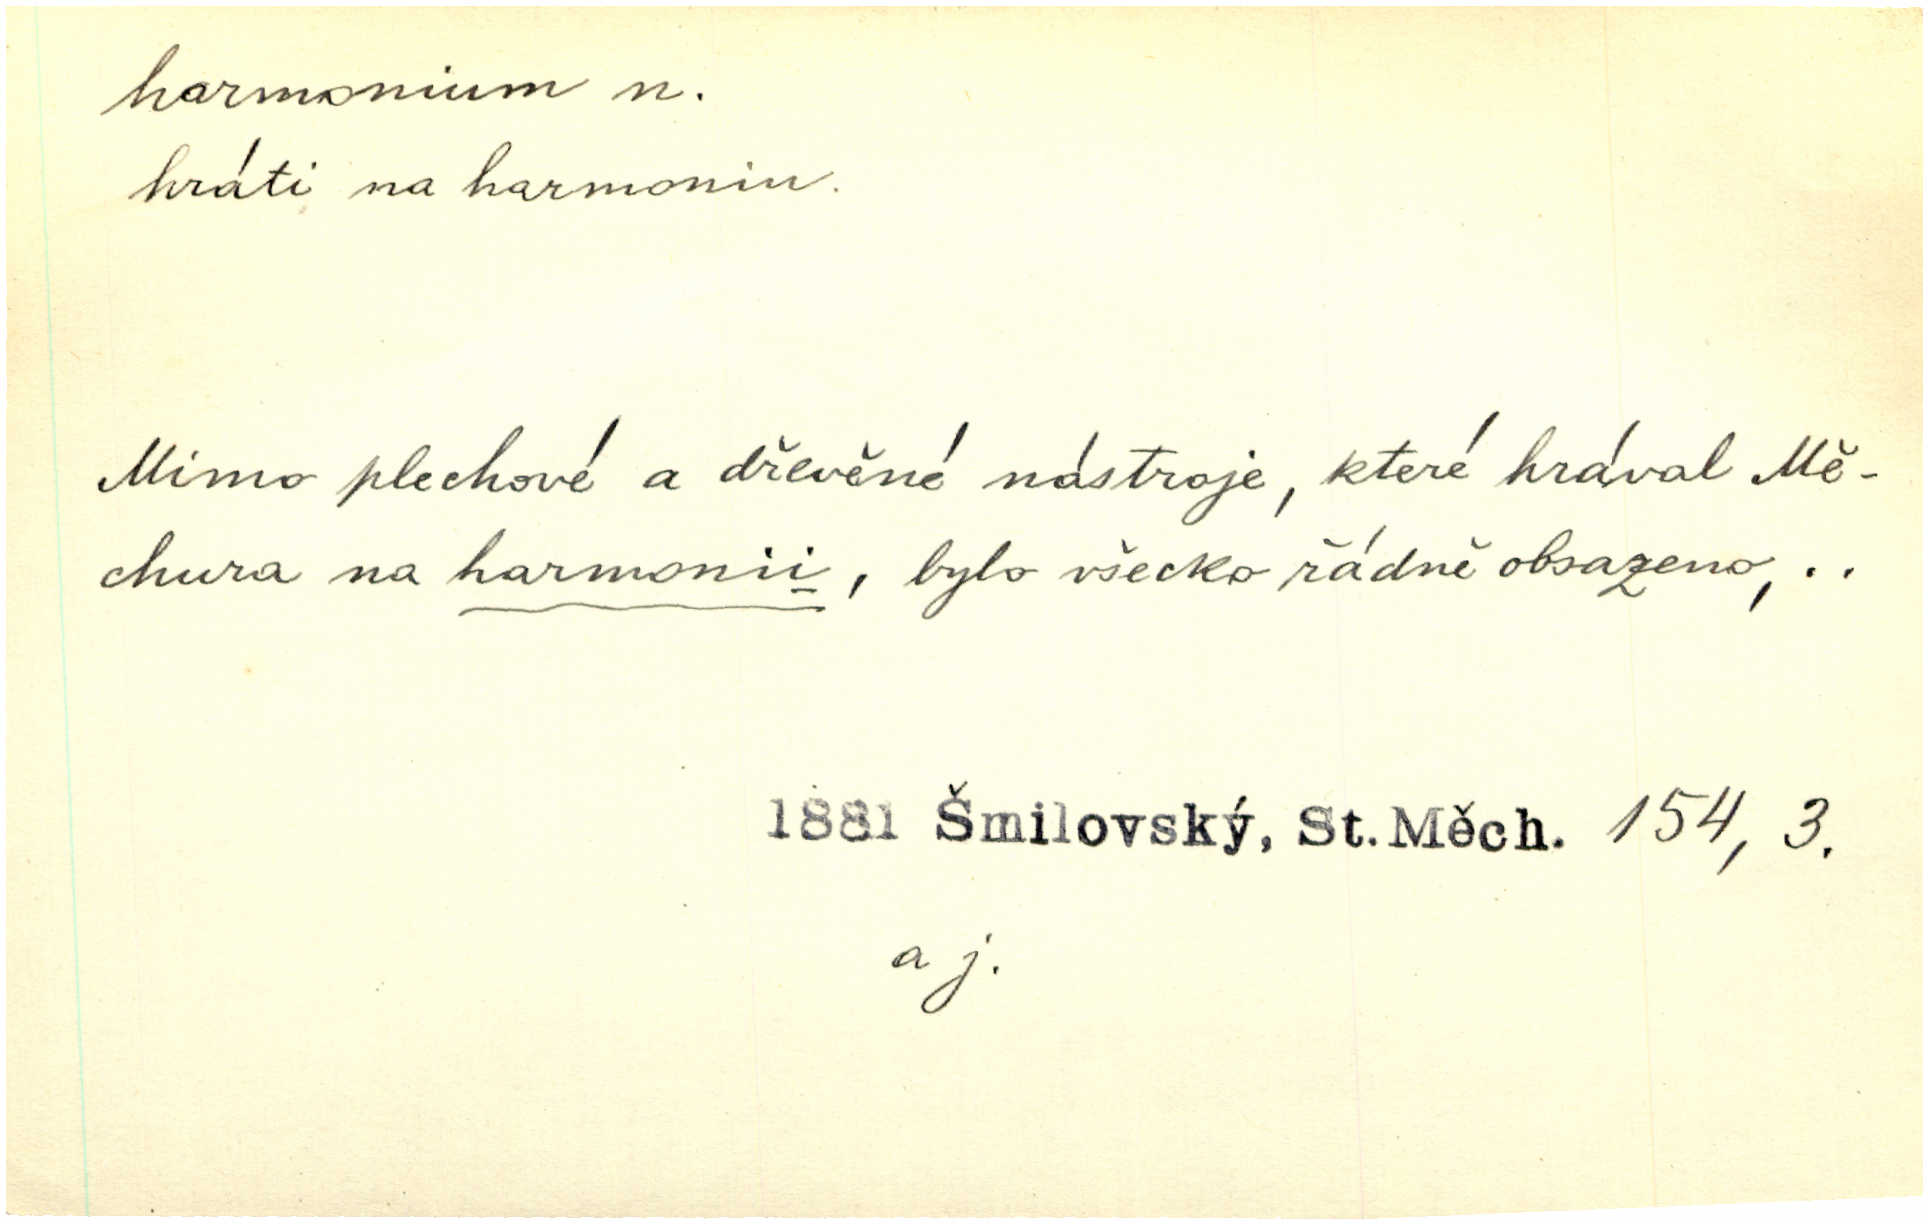 harmonium n.
hráti na harmoniu.
Mimo plechové a dřevěné nástroje, které hrával Mě-
chura na harmonii, bylo všecko řádně obsazeno, ..
1881 Šmilovský, St. Měch. 154, 3.
a j.